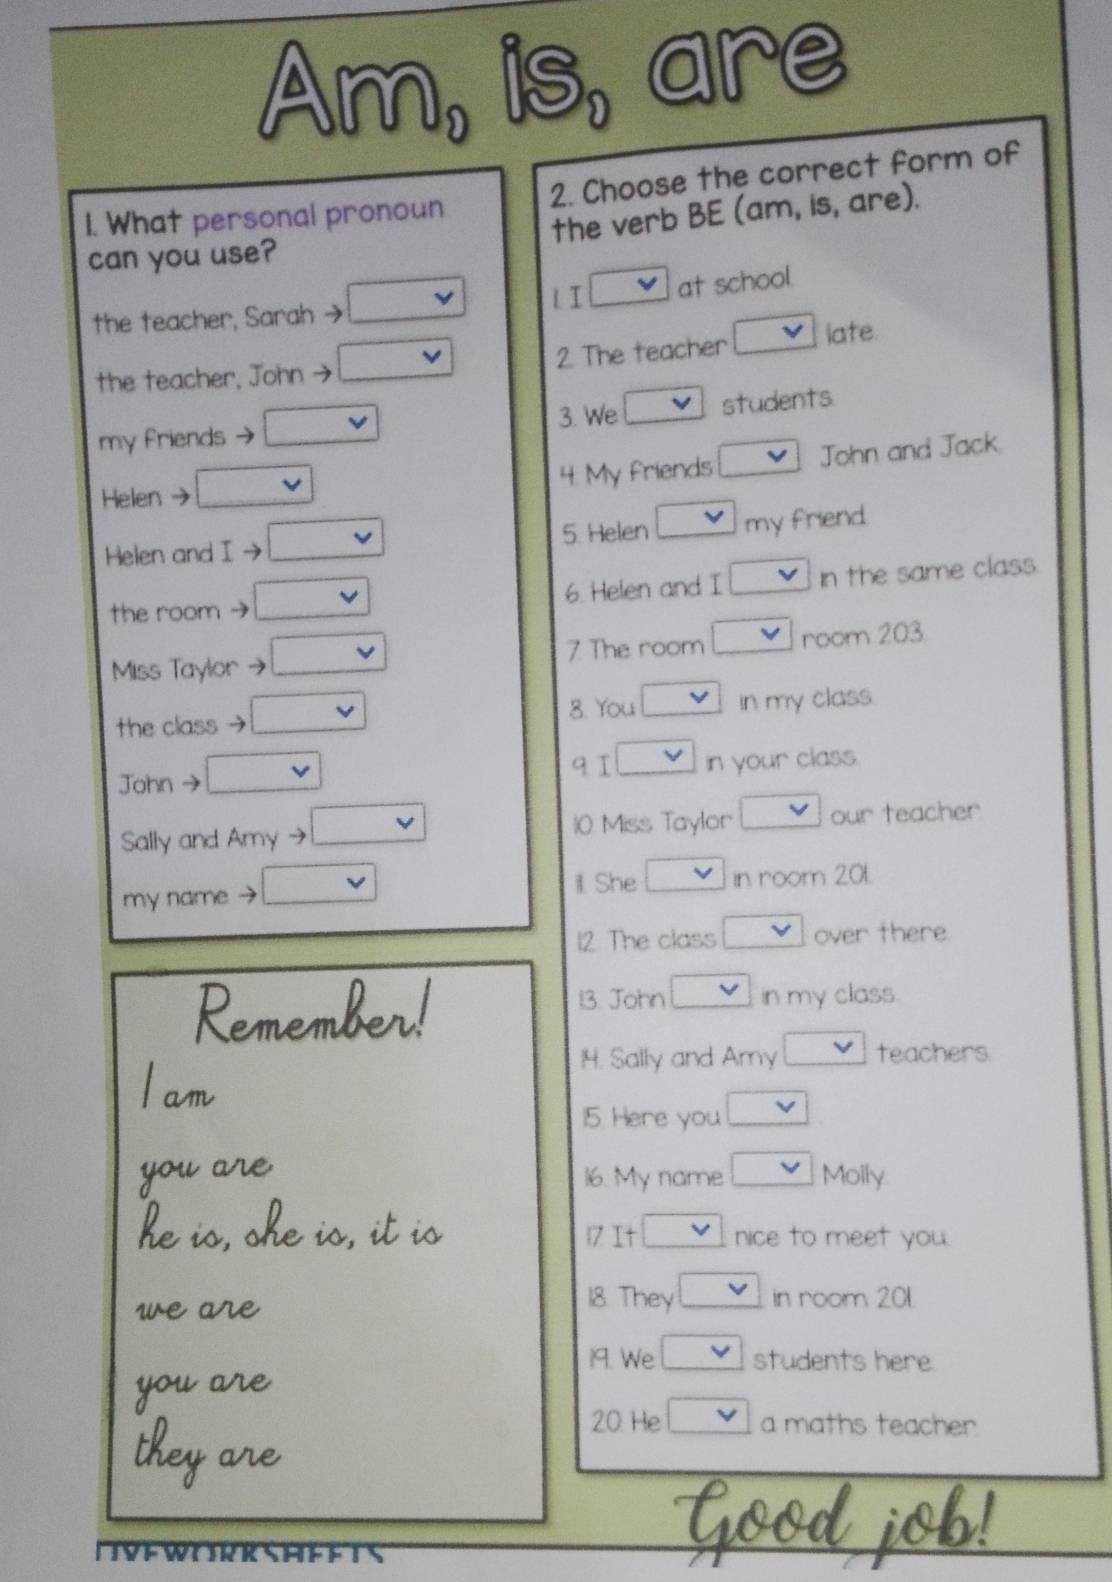 Am, is, are
1. What personal pronoun
can you use?
the teacher, Sarah →
the teacher, John →
my friends →
Helen →
Helen and I →
the room →
Miss Taylor →
the class →
John →
Sally and Amy →
my name →
Remember!
I am
you are
he is, she is, it is
we are
you are
they are
2. Choose the correct form of
the verb BE (am, is, are).
1. I at school.
2. The teacher late.
3. We students.
4. My friends John and Jack.
5. Helen my friend.
6. Helen and I in the same class.
7. The room room 203.
8. You in my class.
9. I in your class.
10. Miss Taylor our teacher.
11. She in room 201.
12. The class over there.
13. John in my class.
14. Sally and Amy teachers.
15. Here you .
16. My name Molly.
17. It nice to meet you.
18. They in room 201.
19. We students here.
20. He a maths teacher.
Good job!
LIVEWORKSHEETS